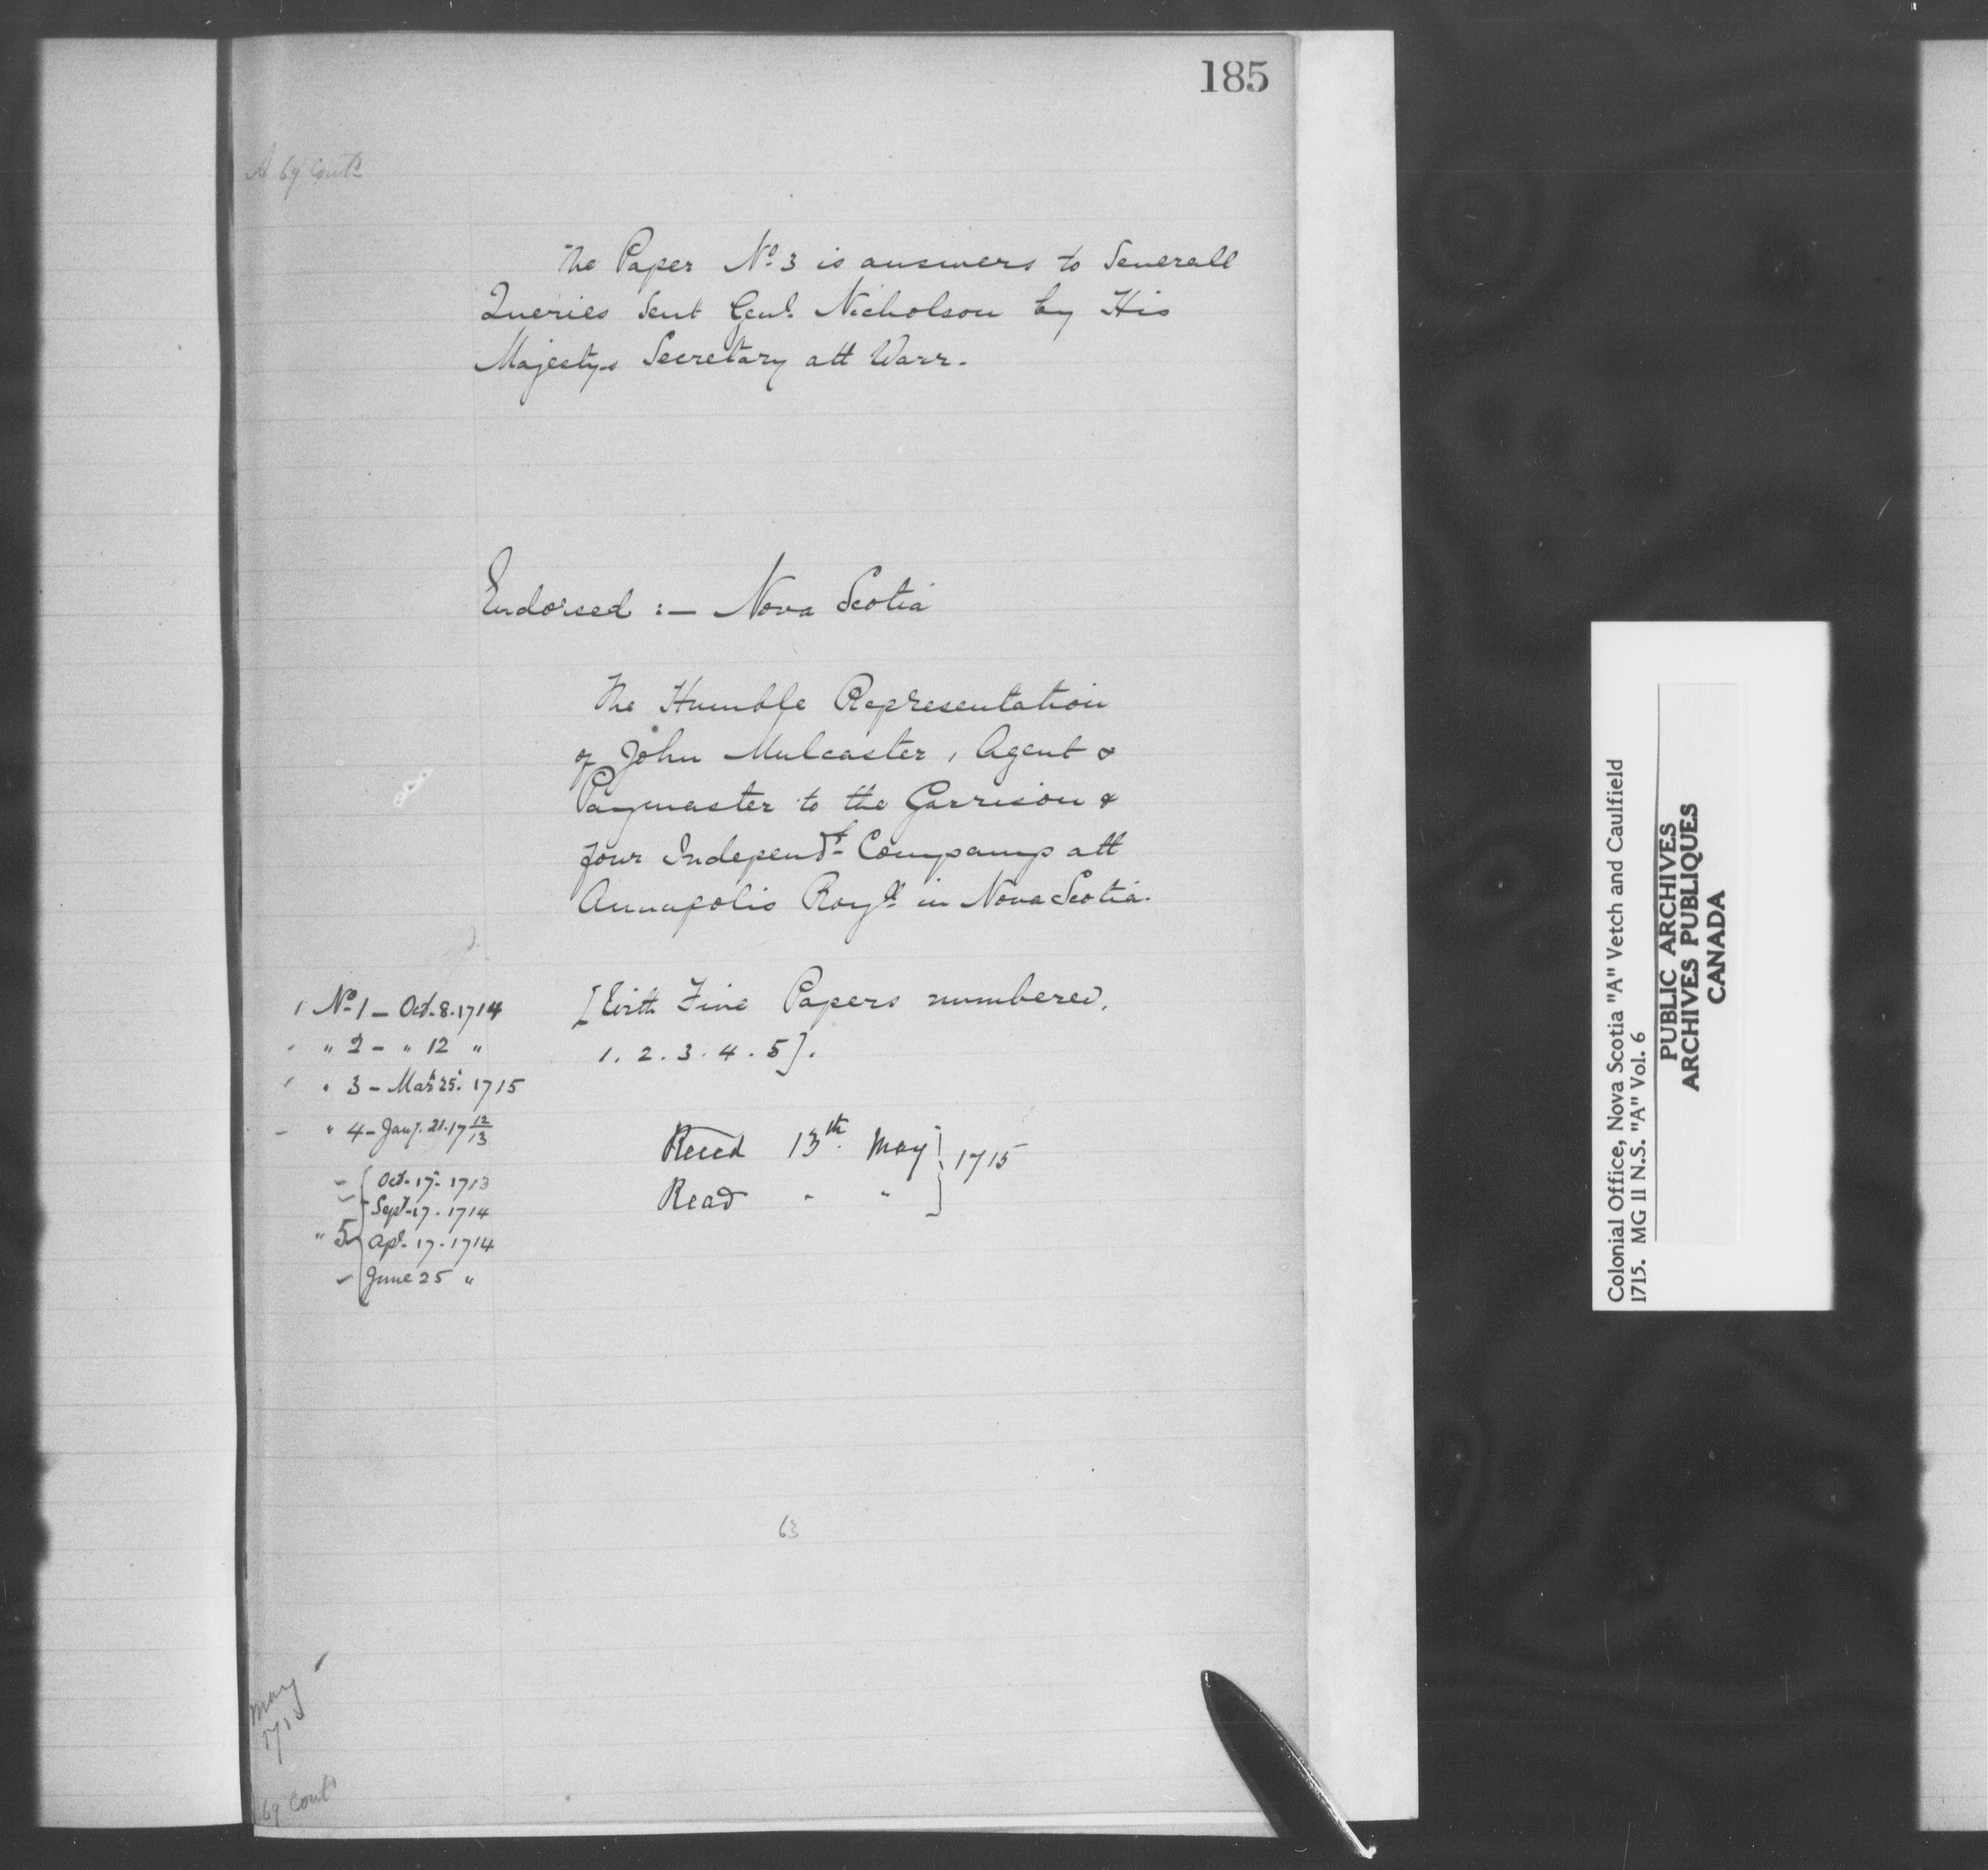 185
A 69 Contd
The Paper No. 3 is answers to Severall
Queries Sent Genl. Nicholson by His
Majestys Secretary att Warr.
Endorsed :— Nova Scotia
The Humble Representation
of John Mulcaster, Agent &
Paymaster to the Garrison &
four Independt. Companys att
Annapolis Royll. in Nova Scotia.
[With Five Papers numbered,
1. 2. 3. 4. 5].
No 1 — Oct. 8. 1714
" 2 — " 12 "
" 3 — Mar 25. 1715
" 4 — Jany. 21. 17 12/13
Oct. 17. 1713
Sept. 17. 1714
" 5 Apl. 17. 1714
June 25 "
Reced 13th May } 1715
Read " "
63
May
1715
69 Cont
Colonial Office, Nova Scotia "A" Vetch and Caulfield
1715. MG 11 N.S. "A" Vol. 6
PUBLIC ARCHIVES
ARCHIVES PUBLIQUES
CANADA